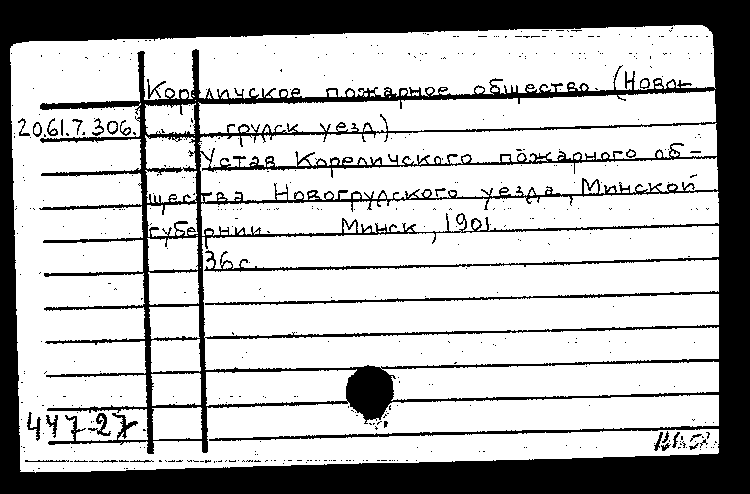 Кореличское пожарное общество. (Ново-
20.61.7.306. грудск уезд)
Устав Кореличского пожарного об-
щества Новогрудского уезда, Минской
губернии. Минск, 1901.
36 с.
447-27